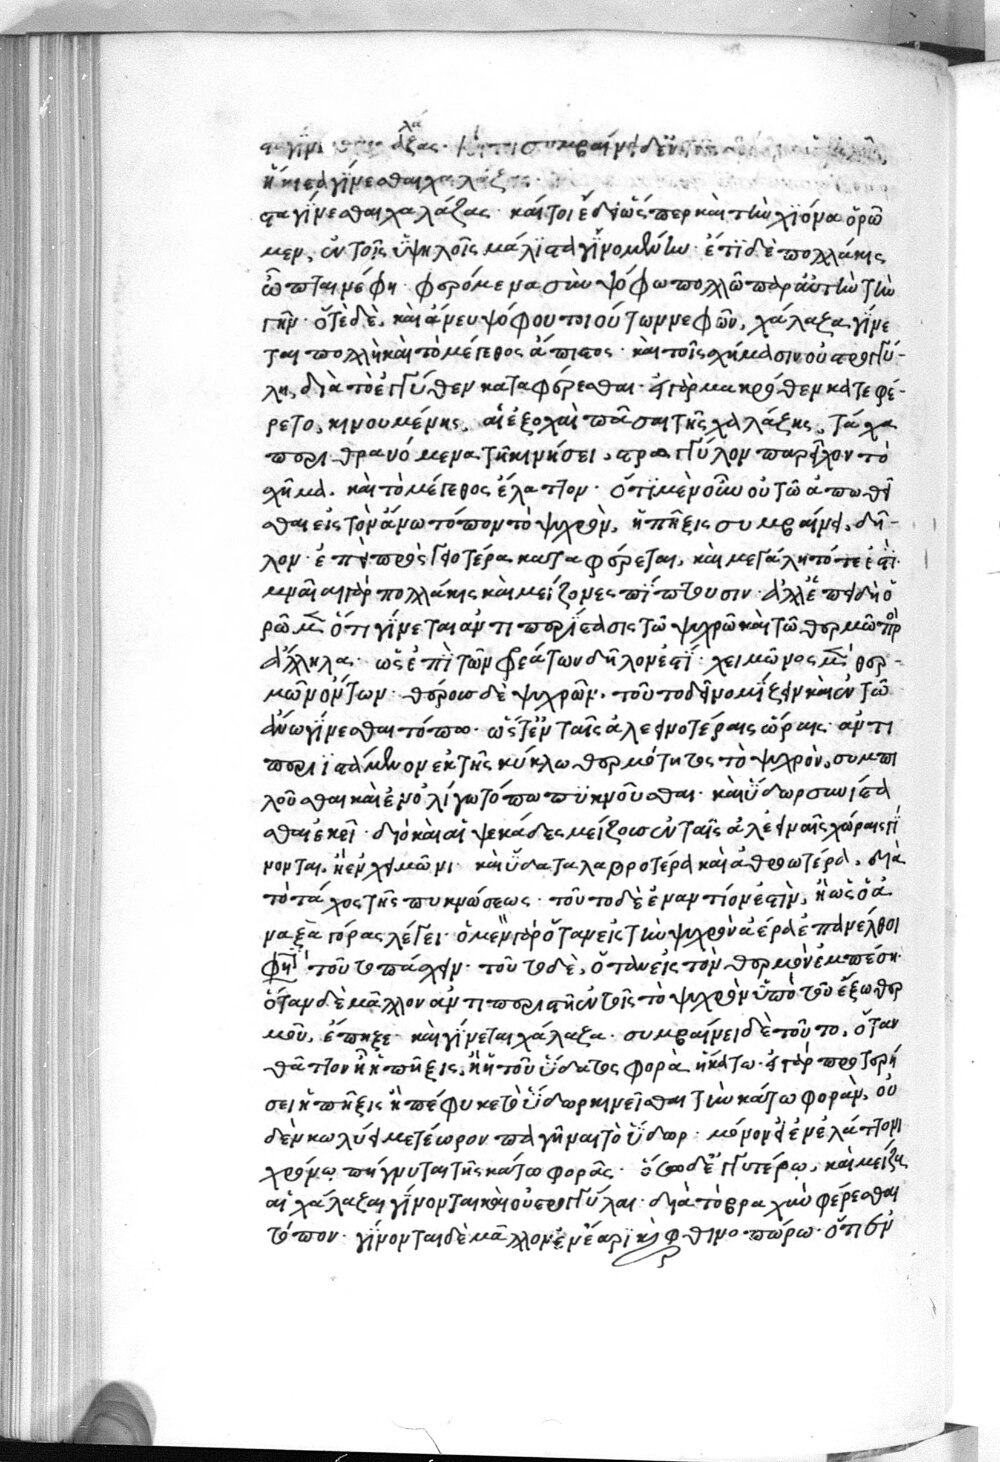 γίνε χαλάζας. συμβαίνει δὲ
γίνεσθαι χαλάζας.
τα γίνεσθαι χαλάζας. καίτοι ἔδει ὥσπερ καὶ τὴν χϊόνα ὁρῶ
μεν, ἐν τοῖς ὑψηλοῖς μάλϊστα γϊνομένην. ἔτϊ δὲ πολλάκις
ὦπται νέφη φερόμενα σὺν ψόφω πολλῶ παρ' αὐτὴν τὴν
γῆν. ὁτὲ δὲ, καὶ ἄνευ ψόφου τοιούτων νεφῶν, χάλαζα γίνε
ται πολλὴ καὶ τὸ μέγεθος ἄπιστος. καὶ τοῖς σχήμασιν οὐ στρογγύ-
λη, διὰ τὸ ἐγγύθεν καταφέρεσθαι. εἰ γὰρ μακρόθεν κατεφέ-
ρετο, κινουμένης, αἱ ἐξοχαὶ πᾶσαι τῆς χαλάζης, τάχα
περιθραυόμεναι τῆ κινήσει, στρογγύλον παρεῖχον τὸ
σχῆμα. καὶ τὸ μέγεθος ἔλαττον. ὅτϊ μὲν οὖν οὐ τῶ ἀπωθεῖ
σθαι εἰς τὸν ἄνω τόπον τὸ ψυχρὸν, ἡ πῆξις συμβαίνει, δῆ-
λον. ἐπεὶ προσγειοτέρα καταφέρεται, καὶ μεγάλη τότε ἐστὶ.
μναῖαι γὰρ πολλάκις καὶ μείζονες πϊπτουσιν. ἀλλ' ἐπειδὴ ὁ
ρῶμεν ὅτι γίνεται ἀντιπερίστασις τῶ ψυχρῶ καὶ τῶ θερμῶ πρὸς
ἄλληλα. ὡς ἐπὶ τῶν φρεάτων δῆλον ἐστὶ. χειμῶνος μὲν θερ-
μῶν ὄντων. θέρους δὲ ψυχρῶν. τοῦτο δεῖ νομίζειν καὶ ἐν τῶ
ἄνω γίνεσθαι τόπω. ὥστ' ἐν ταῖς ἀλεεινοτέραις ὥραις ἀντι
περιϊστάμενον ἐκ τῆς κύκλω θερμότητος τὸ ψυχρὸν, συμπι
λοῦσθαι καὶ ἐν ὀλίγω τόπω πυκνοῦσθαι. καὶ ὕδωρ συνίστα
σθαι ἐκεῖ. διὸ καὶ αἱ ψεκάδες μείζους ἐν ταῖς ἀλεειναῖς χώραις γί
νονται, ἢ ἐν χειμῶνι. καὶ ὕδατα λαβρότερα καὶ ἀθροώτερα, διὰ
τὸ τάχος τῆς πυκνώσεως. τοῦτο δὲ ἐναντίον ἐστὶν, ἢ ὡς ὁ ἀ
ναξαγόρας λέγει. ὁ μὲν γὰρ ὅταν εἰς τὴν ψυχρὸν ἀέρα ἐπανέλθοι
φησὶ τοῦτο πάσχειν. τοῦτο δὲ, ὅταν εἰς τὸν θερμὸν ἐμπέση.
ὅταν δὲ μᾶλλον ἀντιπεριστῆ ἐντὸς τὸ ψυχρὸν ὑπὸ τοῦ ἔξω θερ
μοῦ, ἔπηξε καὶ γίνεται χάλαζα. συμβαίνει δὲ τοῦτο, ὅταν
θᾶττον ἢ ἡ πῆξις, ἢ ἡ τοῦ ὕδατος φορὰ ἡ κάτω. εἰ γὰρ προτερή
σει ἡ πῆξις ἢ πέφυκε τὸ ὕδωρ κινεῖσθαι τὴν κάτω φορὰν, οὐ
δὲν κωλύει μετέωρον παγῆναι τὸ ὕδωρ. μόνον εἰ ἐν ἐλάττονι
χρόνω πήγνυται τῆς κάτω φορᾶς. ὅσω δὲ ἐγγυτέρω, καὶ μείζους
αἱ χάλαζαι γίνονται καὶ οὐ στρογγύλαι. διὰ τὸ βραχὺν φέρεσθαι
τόπον. γίνονται δὲ μᾶλλον ἐν ἔαρϊ καὶ φθινοπώρω. ὅτι ἐν